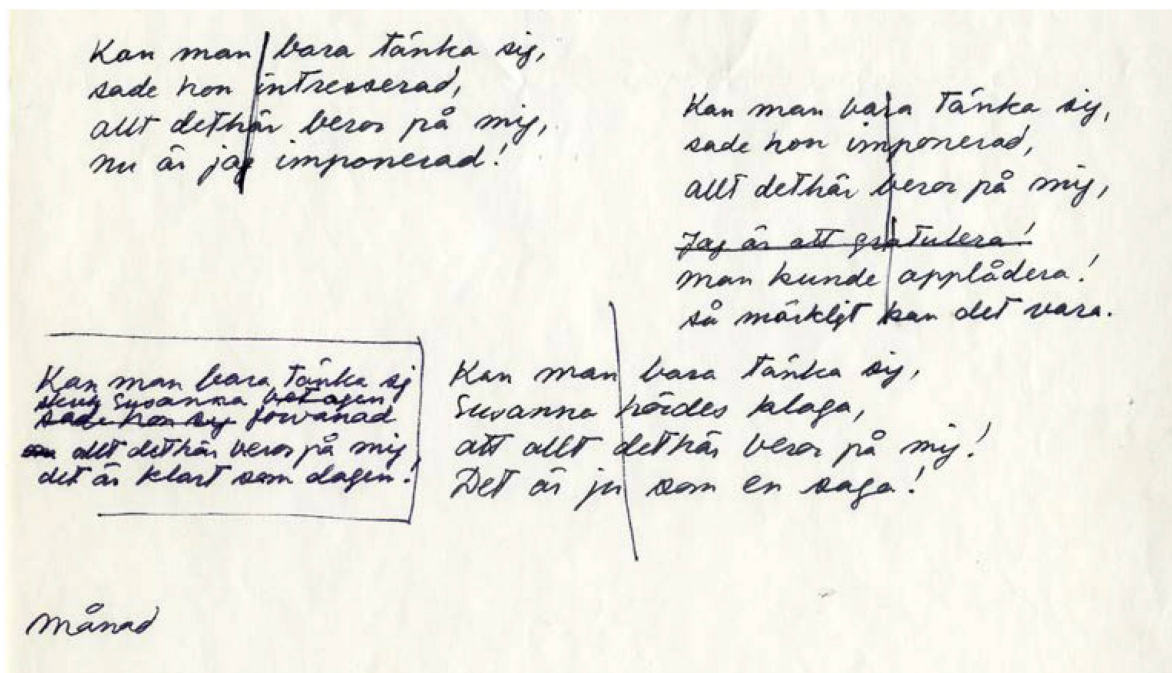 Kan man bara tänka sig,
sade hon intresserad,
allt dethär beror på mig,
nu är jag imponerad!
Kan man bara tänka sig,
sade hon imponerad,
allt dethär beror på mig,
Jag är att gratulera!
man kunde applådera!
så märkligt kan det vara.
Kan man bara tänka sig
Susanna betagen
sade hon sig förvånad
allt dethär beror på mig,
det är klart som dagen!
Kan man bara tänka sig,
Susanna hördes klaga,
att allt dethär beror på mig!
Det är ju som en saga!
månad